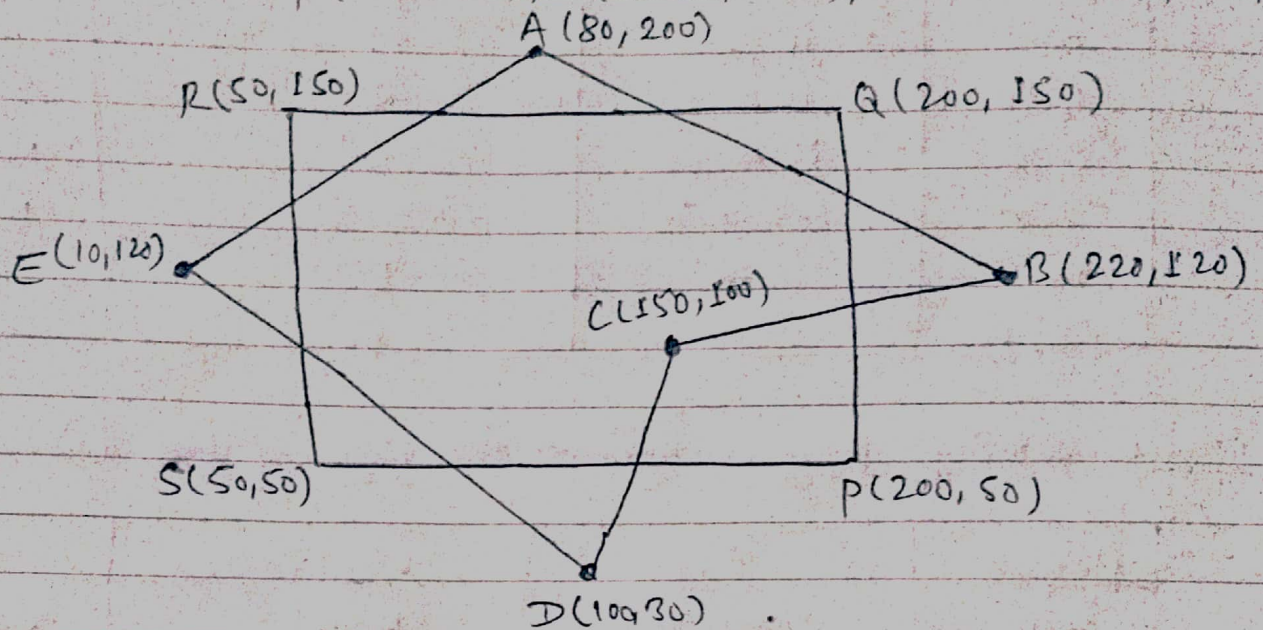 A (80, 200)
R(50, 150)
Q(200, 150)
E(10,120)
B(220, 120)
C(150, 100)
S(50,50)
P(200, 50)
D(100,30)